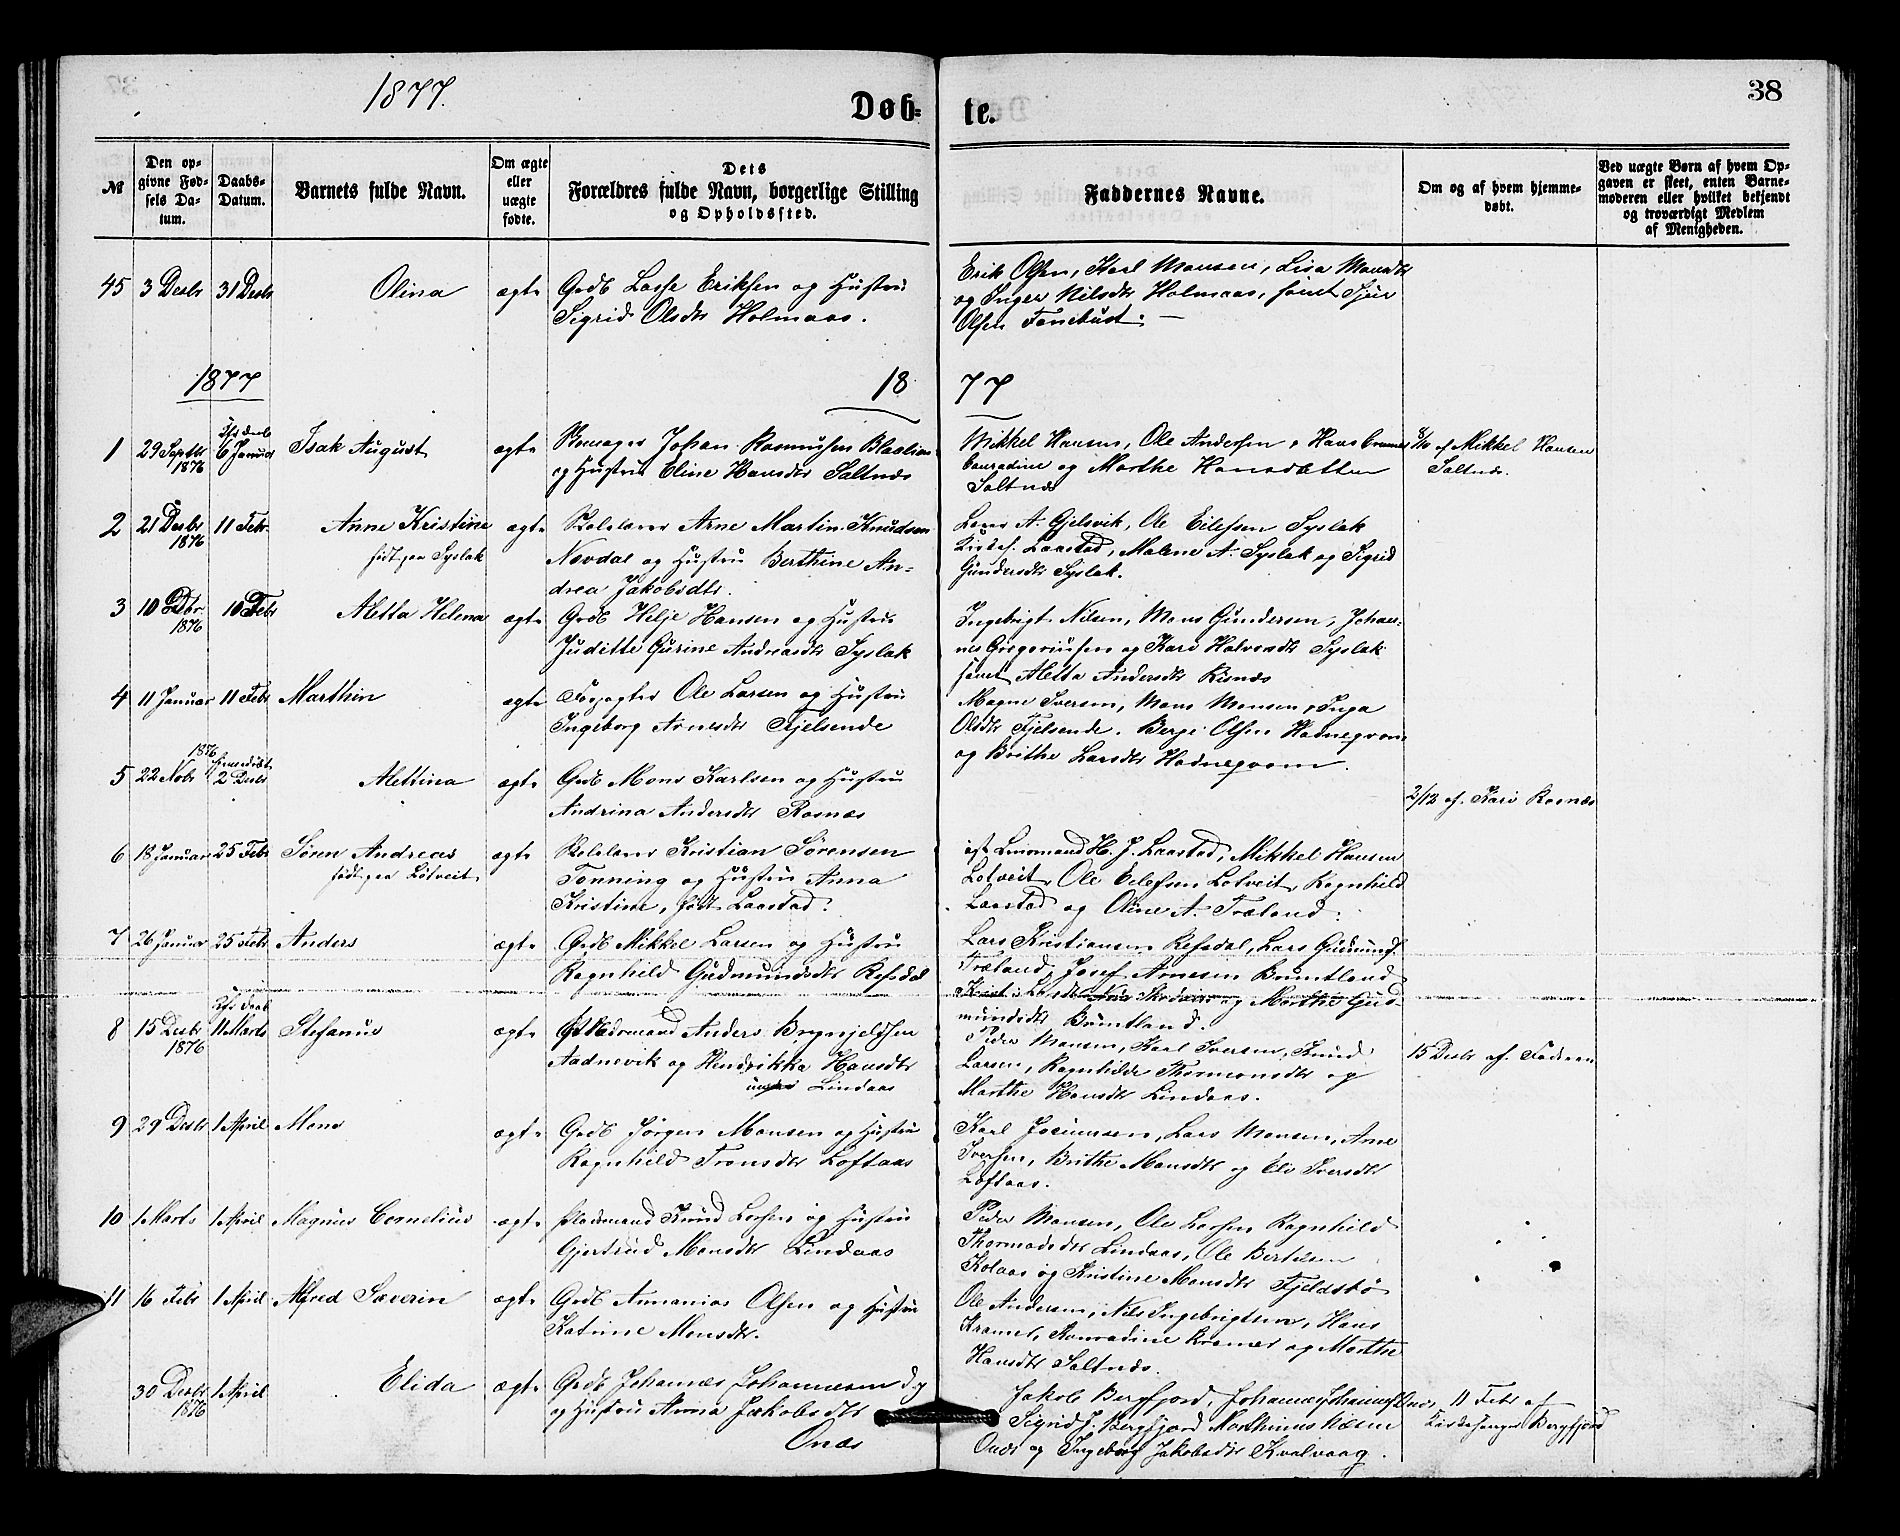 1877.
Døb-
te.
38
№
Den op-
givne Fød-
sels Da-
tum.
Daabs-
Datum.
Barnets fulde Navn.
Om ægte
eller
uægte
fødte.
Dets
Forældres fulde Navn, borgerlige Stilling
og Opholdssted.
Faddernes Navne.
Om og af hvem hjemme-
døbt.
Ved uægte Børn af hvem Op-
gaven er skeet, enten Barne-
moderen eller hvilket bekjendt
og troværdigt Medlem
af Menigheden.
45 3 Desbr 31 Desbr Olina ægte Grdb Lasse Eriksen og Hustru
Sigrid Olsdtr Holmaas.
Erik Olsen, Karl Monsen, Lisa Monsdtr
og Inger Nilsdtr Holmaas, samt
Olsen Fanebust.
1877 18 77
1 29 Septbr 1876 6 Januar Isak August ægte Johan Rasmussen
og Hustru Eline Hansdtr Saltnæs
Mikkel Hansen, Ole Andersen, Hans
Conradine og Marthe Hansdatter
Saltnæs
af Mikkel Hansen
Saltnæs.
2 21 Desbr 1876 11 Febr. Anne Kristine ægte Skolelærer Arne Martin Knudsen
født paa Syslak
Nævdal og Hustru Berthine An-
drea Jakobsdtr.
Lærer A. Gjelsvik, Ole Eilefsen Syslak
Laastad, Malene A. Syslak og Sigrid
Gundersdtr Syslak.
3 10 Desbr. 1876 10 Febr Aletta Helena ægte Grdb Helje Hansen og Hustru
Juditte Gurine Andreasdtr Syslak
Ingebrigt Nilsen, Mons Gundersen, Johan-
nes Gregoriusen og Kari Halvorsdtr Syslak
samt Aletta Andersdtr Risnæs
4 11 Januar 11 Febr Marthin ægte Forpagter Ole Larsen og Hustru
Ingeborg Arnesdtr Fjelsende
Magne Iversen, Mons Monsen, Inga
Olsdtr Fjelsende. Berge Olsen Hodnegrøm
og Brithe Larsdtr Hodnegrøm.
5 22 Nobr 1876 2 Desbr Alettina ægte Grdb Mons Karlsen og Hustru
Andrina Andersdtr Rosnæs
2/12 af. Kari Rosnæs
6 18 Januar 25 Febr Søren Andreas ægte Skolelærer Kristian Sørensen
født paa Lotveit
Tonning og Hustru Anna
Kristine, født Laastad.
Lensmand H. J. Laastad, Mikkel Hansen
Lotveit, Ole Eilefsen Lotveit, Ragnhild
Laastad og Oline A. Træland.
7 26 Januar 25 Febr Anders ægte Grdb Mikkel Larsen og Hustru
Ragnhild Gudmundsdtr Refsdal
Lars Kristiansen Refsdal, Lars Gudmunds.
Træland, Josef Arnesen Bruntland
og Marthe Gud-
mundsdtr Bruntland.
8 15 Desbr 1876 11 Marts Stefanus ægte Anders Brynjelfsen
Aadnevik og Hendrikka Hansdtr
Lindaas
Peder Monsen, Karl Iversen, Knud
Larsen, Ragnhilde Thormonsdtr og
Marthe Hansdtr Lindaas.
15 Desbr af. Faderen
9 29 Desbr 1 April Mons ægte Grdb Jørgen Monsen og Hustru
Ragnhild Tronsdtr Loftaas
Karl Lars Monsen, Arne
Iversen, Brithe Monsdtr og Eli Iversdtr
Loftaas.
10 1 Marts 1 April Magnus Cornelius ægte Pladsmand Knud Larsen og Hustru
Gjertrud Monsdtr Lindaas
Peder Monsen, Ole Larsen Ragnhild
Thormodsdtr Lindaas, Ole Bertusen
Kolaas og Kristine Monsdtr Fjeldsbø
11 16 Febr 1 April Alfred Severin ægte Grdb Annanias Olsen og Hustru
Katrine Monsdtr.
Ole Andersen, Nils Ingebrigtsen, Hans
Kramer, Konradine Kramer og Marthe
Hansdtr Saltnæs.
30 Desbr 1876 1 April Elida ægte Grdb Johannes Johannesen d.y
og Hustru Anna Jakobsdtr
Onæs
Jakob Bergfjord, Johannes
Sigrid J. Bergfjord Marthinus
Onæs og Ingeborg Jakobsdtr Kvalvaag.
11 Febr af
Kirkesanger Bergfjord